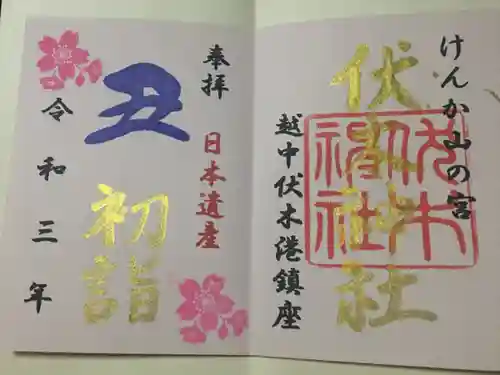 けんか山の宮
伏木神社
伏木神社
越中伏木港鎮座
奉拝
日本遺産
丑
初詣
令和三年